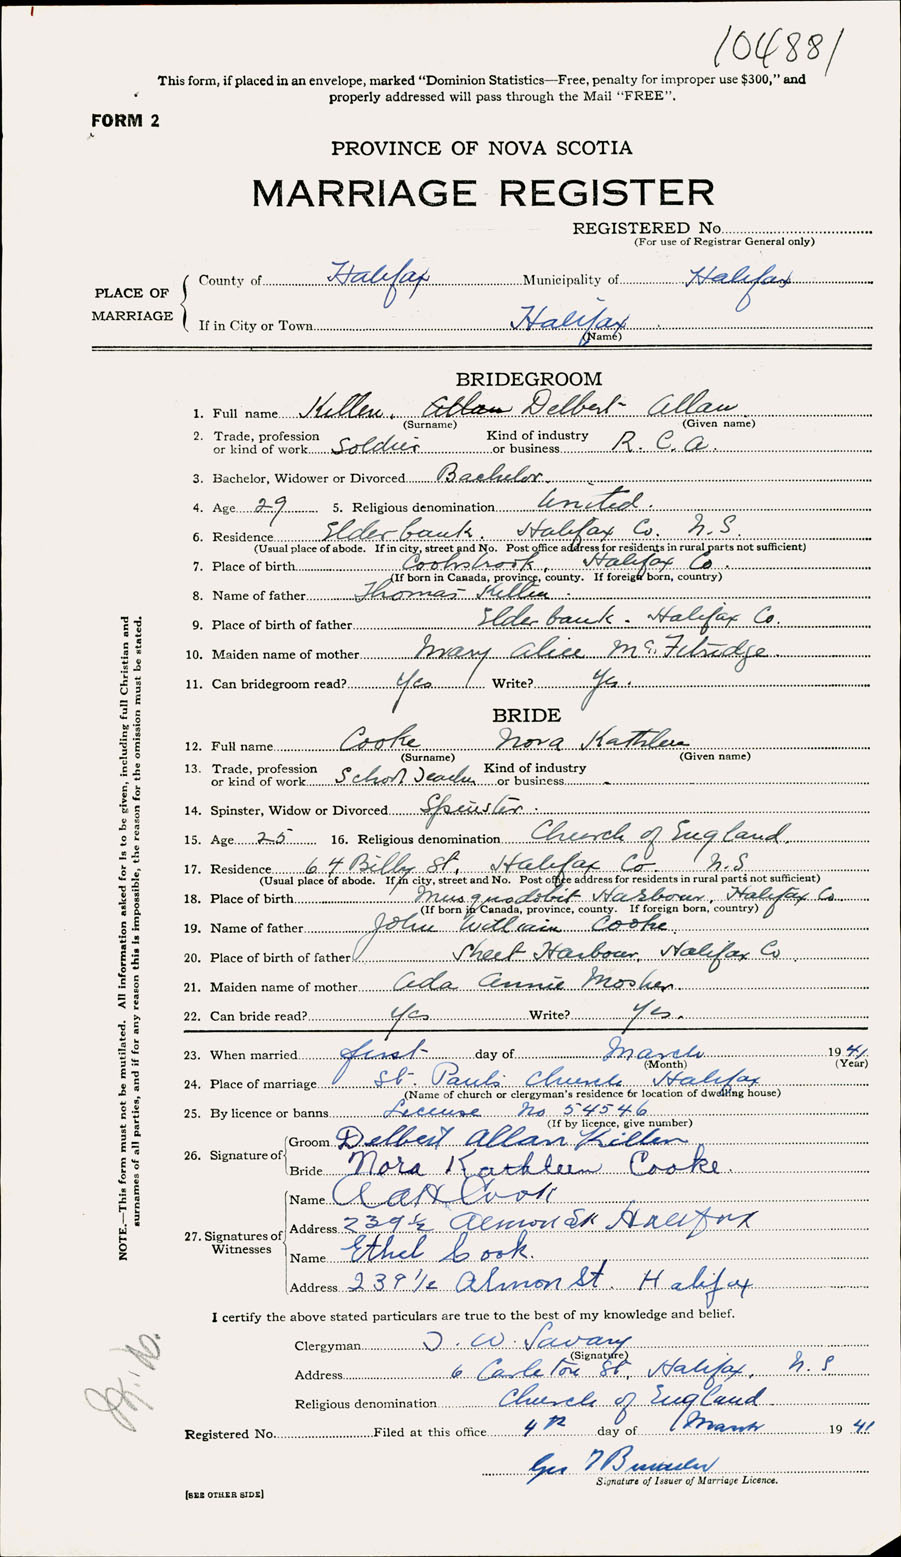 104881
This form, if placed in an envelope, marked “Dominion Statistics—Free, penalty for improper use $300,” and
properly addressed will pass through the Mail “FREE”.
FORM 2
PROVINCE OF NOVA SCOTIA
MARRIAGE REGISTER
REGISTERED No.
(For use of Registrar General only)
PLACE OF MARRIAGE
County of Halifax Municipality of Halifax
If in City or Town Halifax
(Name)
BRIDEGROOM
1. Full name Killen, Allan Delbert Allan
(Surname) (Given name)
2. Trade, profession or kind of work Soldier Kind of industry or business R.C.A.
3. Bachelor, Widower or Divorced Bachelor.
4. Age 29 5. Religious denomination United.
6. Residence Elderbank. Halifax Co. N.S.
(Usual place of abode. If in city, street and No. Post office address for residents in rural parts not sufficient)
7. Place of birth Halifax Co.
(If born in Canada, province, county. If foreign born, country)
8. Name of father Thomas Killen.
9. Place of birth of father Elderbank. Halifax Co.
10. Maiden name of mother Mary Alice McFetridge.
11. Can bridegroom read? Yes Write? Yes.
BRIDE
12. Full name Cooke Nora Kathleen
(Surname) (Given name)
13. Trade, profession or kind of work School Teacher Kind of industry or business -
14. Spinster, Widow or Divorced Spinster.
15. Age 25 16. Religious denomination Church of England.
17. Residence 64 Bilby St, Halifax Co N.S
(Usual place of abode. If in city, street and No. Post office address for residents in rural parts not sufficient)
18. Place of birth Musquodobit Harbour, Halifax Co
(If born in Canada, province, county. If foreign born, country)
19. Name of father John William Cooke.
20. Place of birth of father Sheet Harbour, Halifax Co.
21. Maiden name of mother Ada Annie Mosher.
22. Can bride read? Yes Write? Yes.
23. When married first day of March 1941
(Month) (Year)
24. Place of marriage St. Paul's Church Halifax
(Name of church or clergyman's residence or location of dwelling house)
25. By licence or banns License No 54546
(If by licence, give number)
26. Signature of
Groom Delbert Allan Killen
Bride Nora Kathleen Cooke.
27. Signatures of Witnesses
Name Cook
Address 239½ Almon St Halifax
Name Ethel Cook.
Address 239 1/2 Almon St. Halifax
I certify the above stated particulars are true to the best of my knowledge and belief.
Clergyman T. W. Savary
(Signature)
Address 6 Carleton St, Halifax, N.S
Religious denomination Church of England
Registered No. Filed at this office 4th day of March 1941
Geo
Signature of Issuer of Marriage Licence.
[SEE OTHER SIDE]
NOTE.—This form must not be mutilated. All information asked for is to be given, including full Christian and
surnames of all parties, and if for any reason this is impossible, the reason for the omission must be stated.